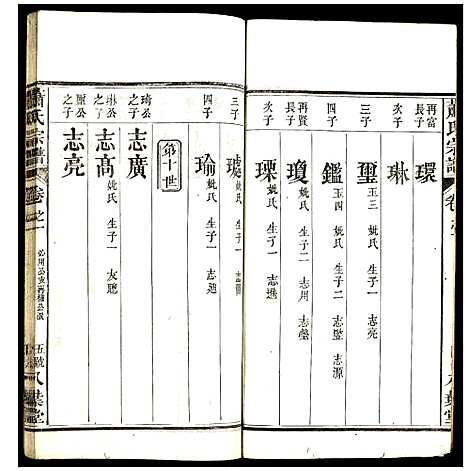 蕭氏宗譜
再富長子 環
次子 琳
三子 璽 玉三 姚氏 生子一 志亮
四子 鑑 玉四 姚氏 生子二 志監 志源
再貴長子 瓊 姚氏 生子二 志用 志聲
次子 瑮 姚氏 生子一 志進
三子 姚氏 生子一
四子 瑜 姚氏 生子一 志
第十世
琦公之子 志廣
琳公之子 志高 姚氏 生子一 友聰
璽公之子 志亮
蕭氏宗譜 卷之一
五號 八葉堂